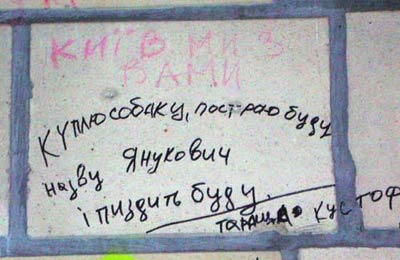 КИЇВ МИ З
ВАМИ
КУПЛЮ СОБАКУ, ПОСТРАЮ БУДУ
НАЗВУ ЯНУКОВИЧ
І ПИЗДИТЬ БУДУ.
КУСТОФ